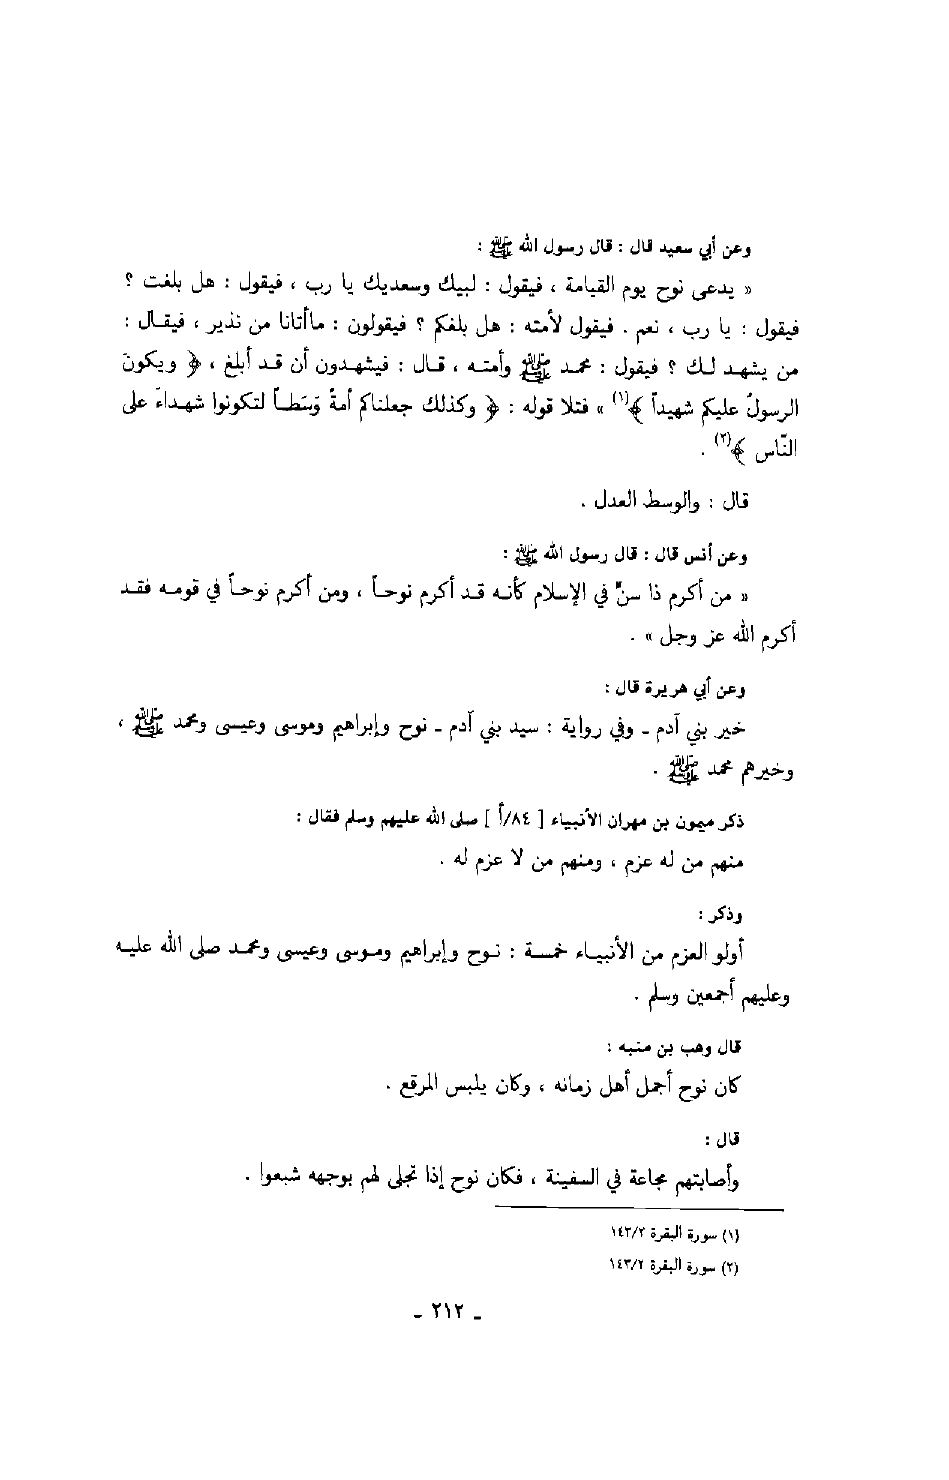 وعن أبي سعيد قال : قال رسول الله ﷺ :
« يدعى نوح يوم القيامة ، فيقول : لبيك وسعديك يا رب ، فيقول : هل بلغت ؟
فيقول : يا رب ، نعم . فيقول لأمته : هل بلغكم ؟ فيقولون : ماأتانا من نذير ، فيقـال :
من يشهد لك ؟ فيقول : محمد ﷺ وأمته ، قال : فيشهدون أن قد أبلغ ، ﴿ ويكونَ
الرسولُ عليكم شهيداً ﴾(١) » فتلا قوله : ﴿ وكذلك جعلناكم أمةً وَسَطاً لتكونوا شهداءَ على
النّاس ﴾(٢) .
قال : والوسط العدل .
وعن أنس قال : قال رسول الله ﷺ :
« من أكرم ذا سنٍّ في الإسلام كأنه قد أكرم نوحاً ، ومن أكرم نوحاً في قومه فقد
أكرم الله عز وجل » .
وعن أبي هريرة قال :
خير بني آدم ـ وفي رواية : سيد بني آدم ـ نوح وإبراهيم وموسى وعيسى ومحمد ﷺ ،
وخيرهم محمد ﷺ .
ذكر ميمون بن مهران الأنبياء [ ٨٤/أ ] صلى الله عليهم وسلم فقال :
منهم من له عزم ، ومنهم من لا عزم له .
وذكر :
أولو العزم من الأنبياء خمسة : نوح وإبراهيم وموسى وعيسى ومحمد صلى الله عليه
وعليهم أجمعين وسلم .
قال وهب بن منبه :
كان نوح أجمل أهل زمانه ، وكان يلبس المرقع .
قال :
وأصابتهم مجاعة في السفينة ، فكان نوح إذا تجلى لهم بوجهه شبعوا .
(١) سورة البقرة ١٤٣/٢
(٢) سورة البقرة ١٤٣/٢
ـ ٢١٢ ـ